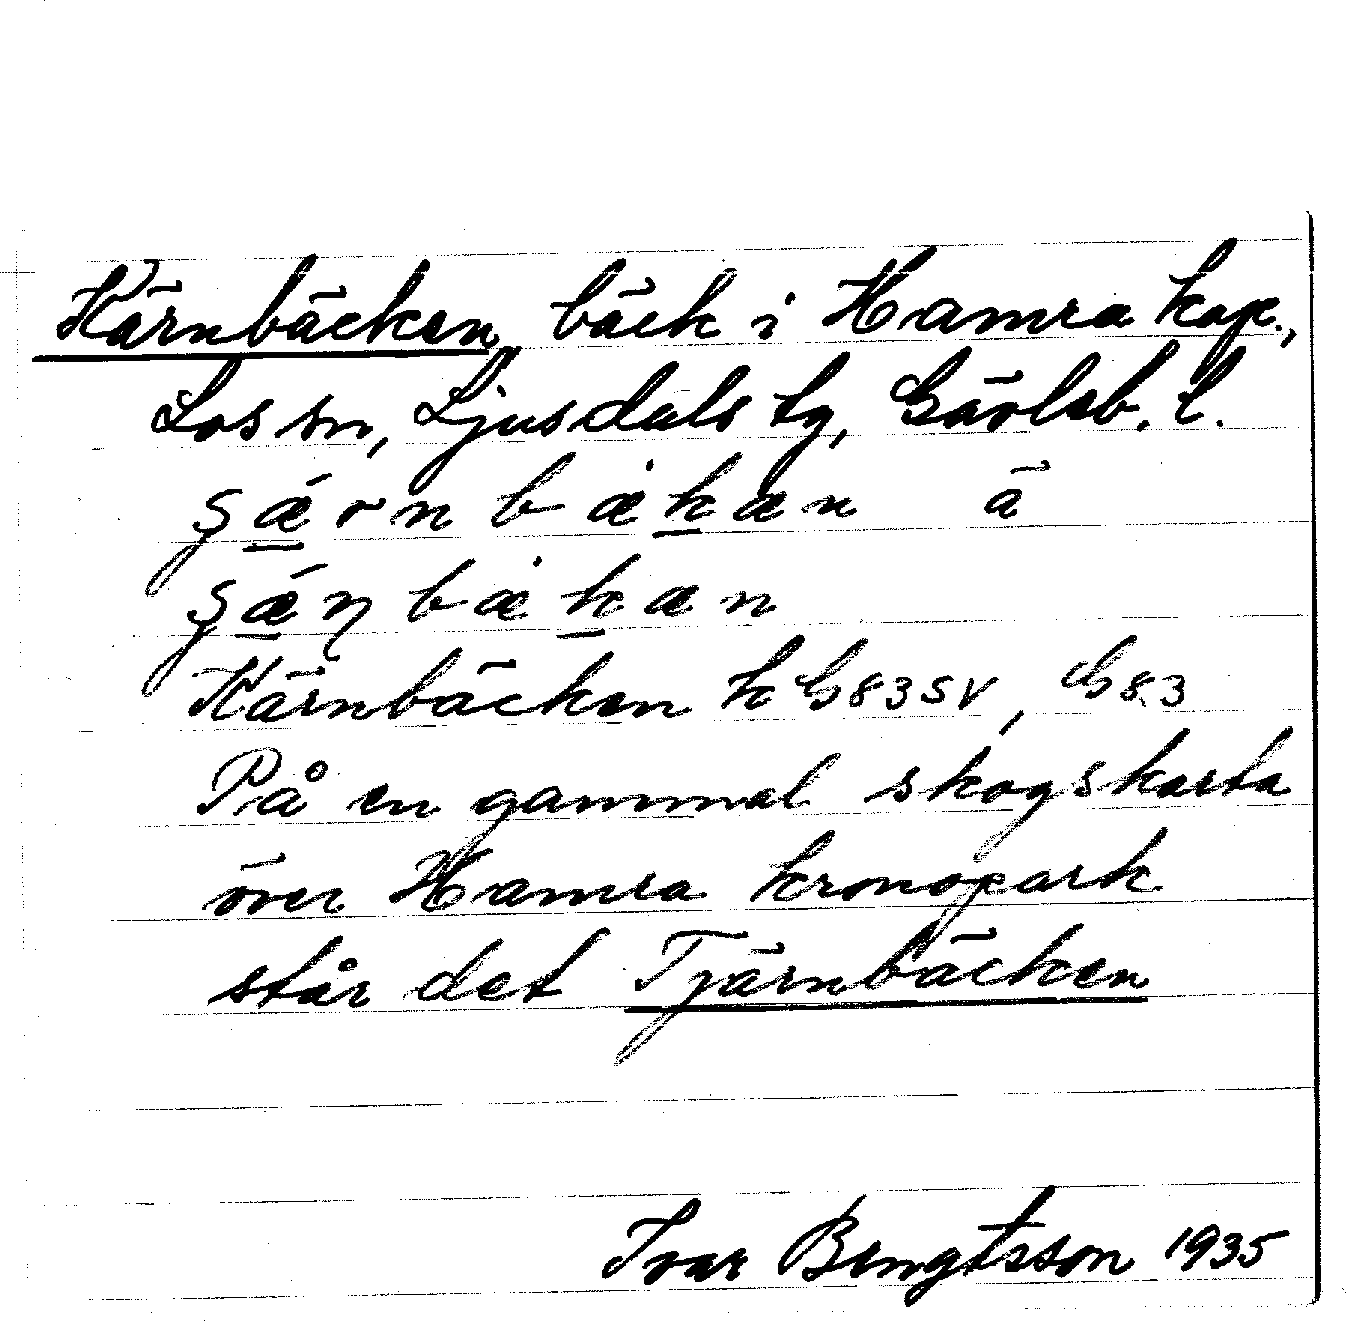 Kärnbäcken, bäck i Hamra kap.,
Los sn, Ljusdals tg, Gävleb. l.
ʂǽrnbækæn ā
ʂǽɳbækæn
Kärnbäcken k G83SV, G83
På en gammal skogskarta
över Hamra kronopark
står det Tjärnbäcken
Ivar Bengtsson 1935